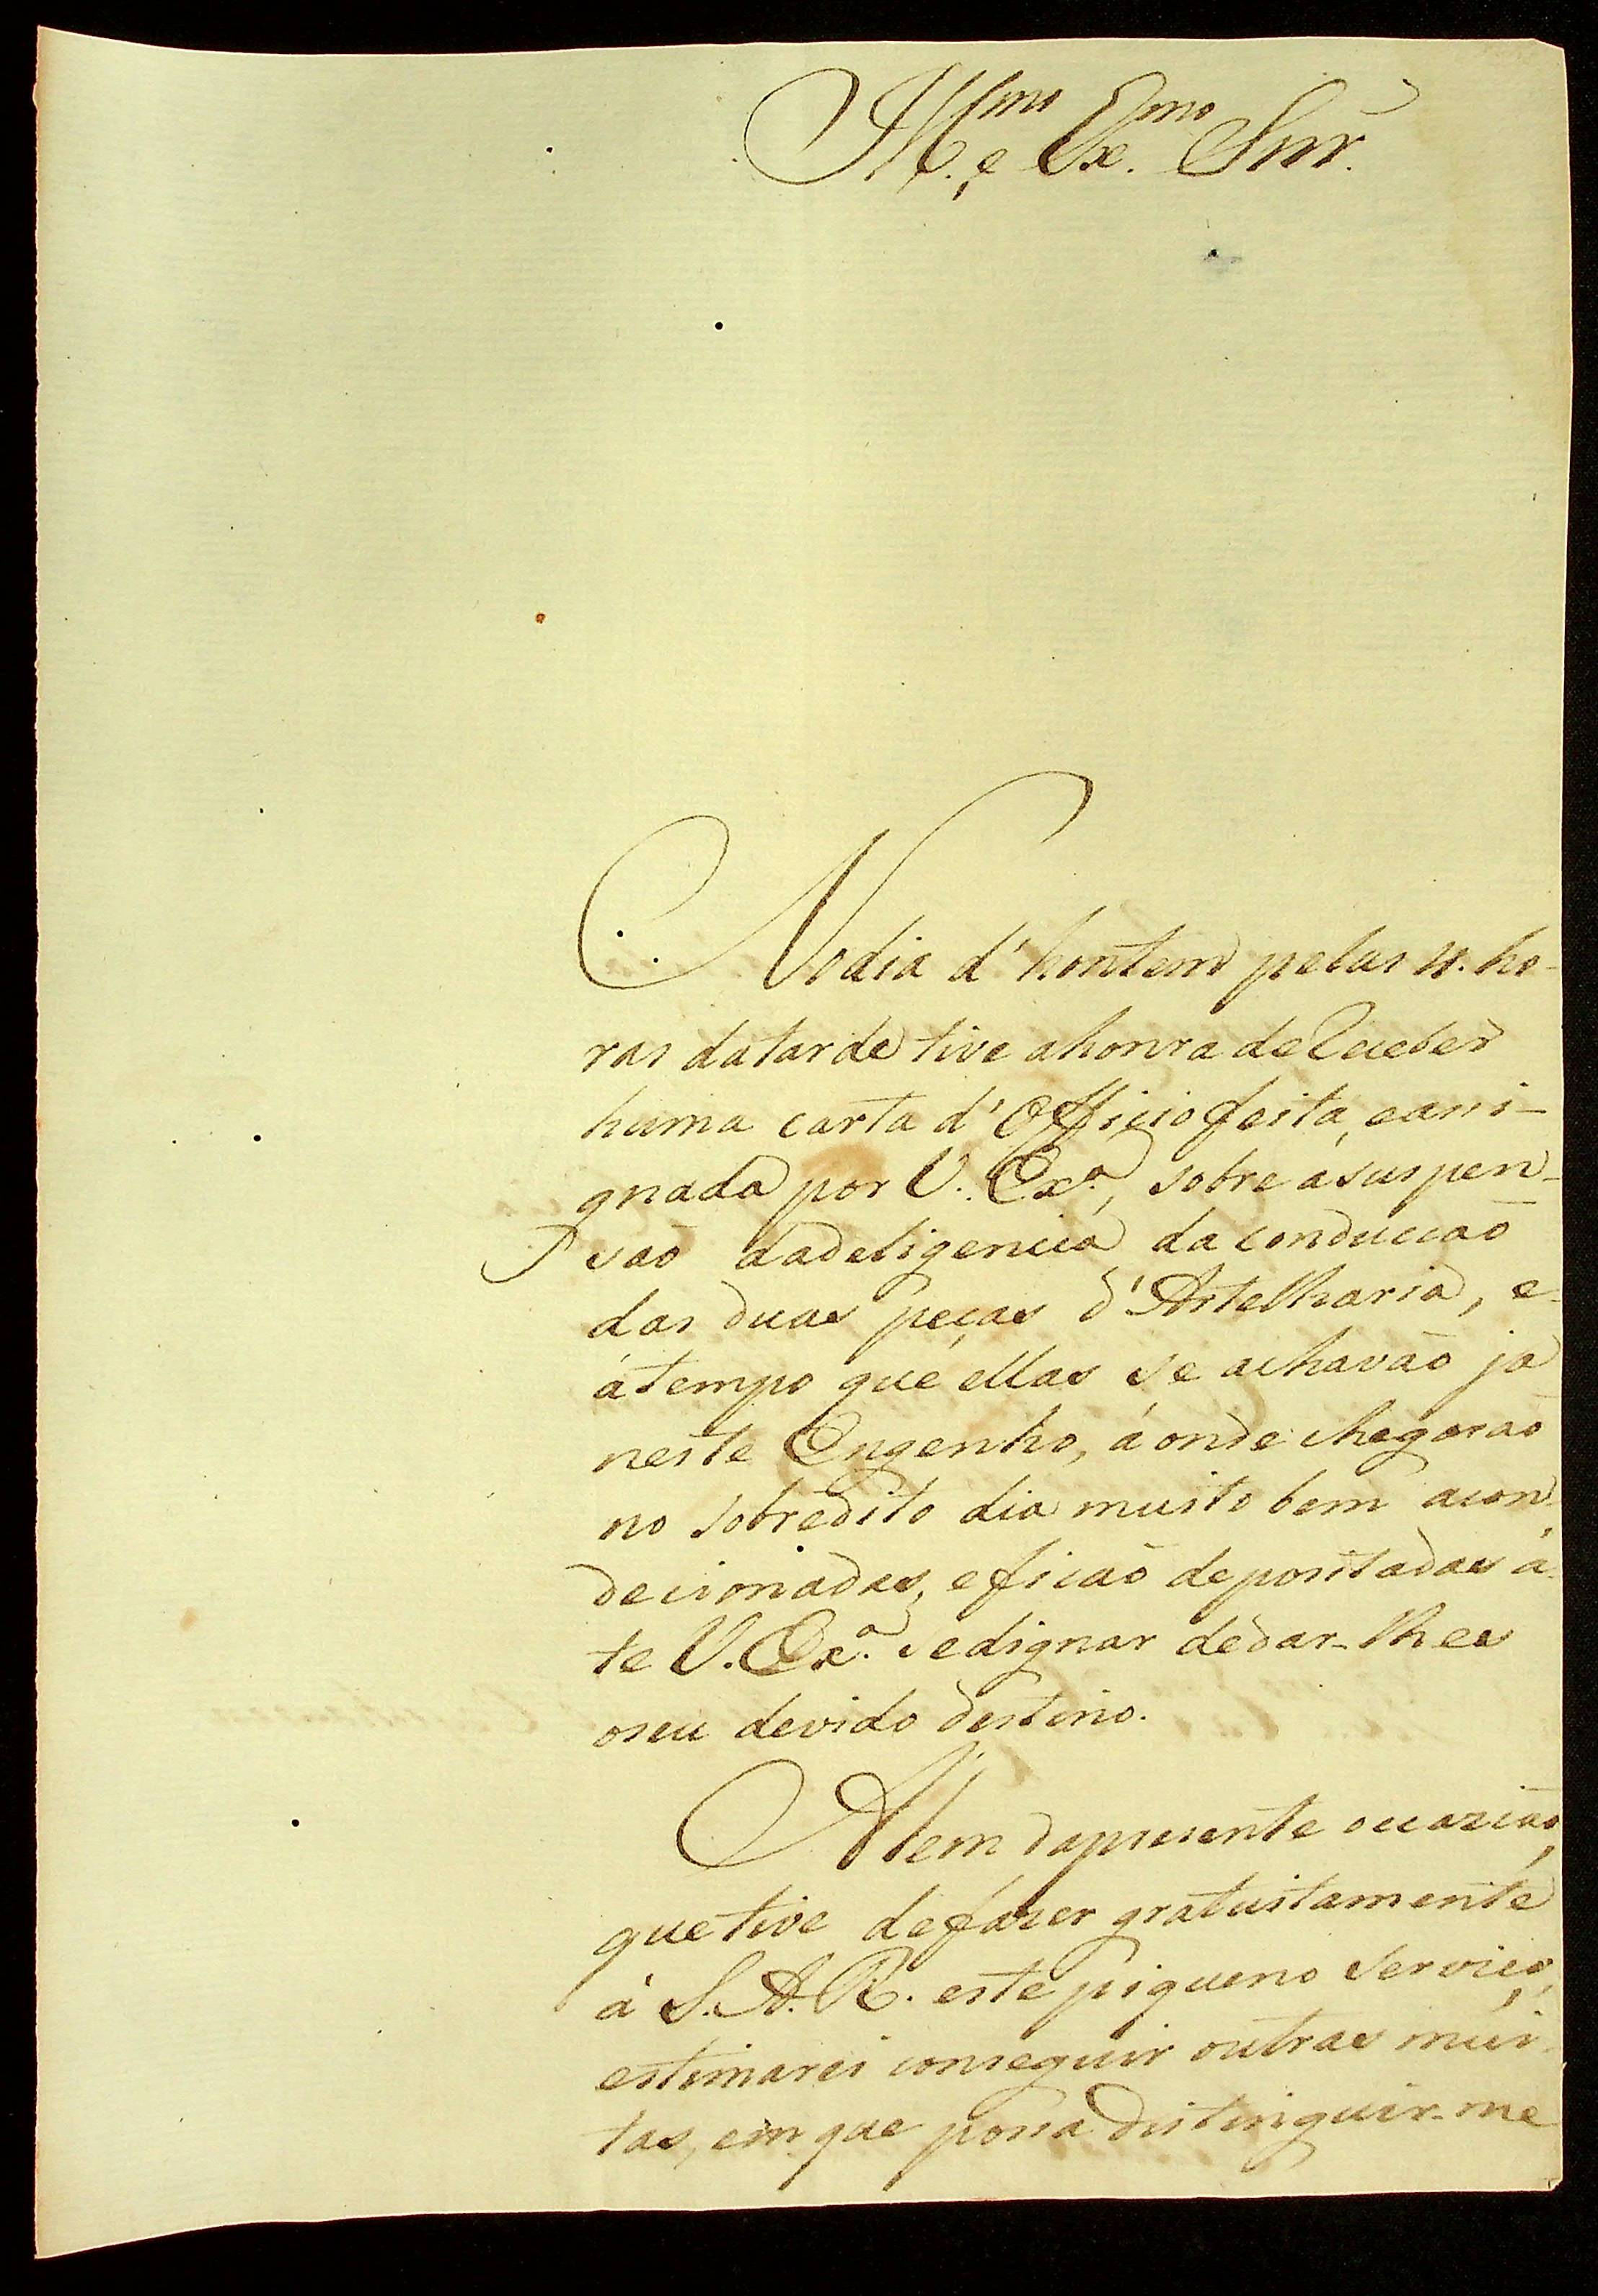 Ill.mo e Ex.mo Snr.
No dia d'hontem pelas 4. ho-
ras datarde tive ahonra de Receber
huma carta d'Officio feita, eassi-
gnada por V. Ex.a, sobre asuspen-
saõ dadeligencia da conducaõ
das duas peças d'Artelharia, e
átempo que ellas se achavaõ ja
neste Engenho, áonde chegaraõ
no sobredito dia muito bem acon-
decionadas, eficaõ depositadas a-
te V. Ex.a sedignar dedar-lhes
oseu devido destino.
Alem dapresente occaziaõ,
quetive defaser gratuitamente
á S. A. R. este piqueno servico,
estimarei conseguir outras mui-
tas, em que possa distinguir-me